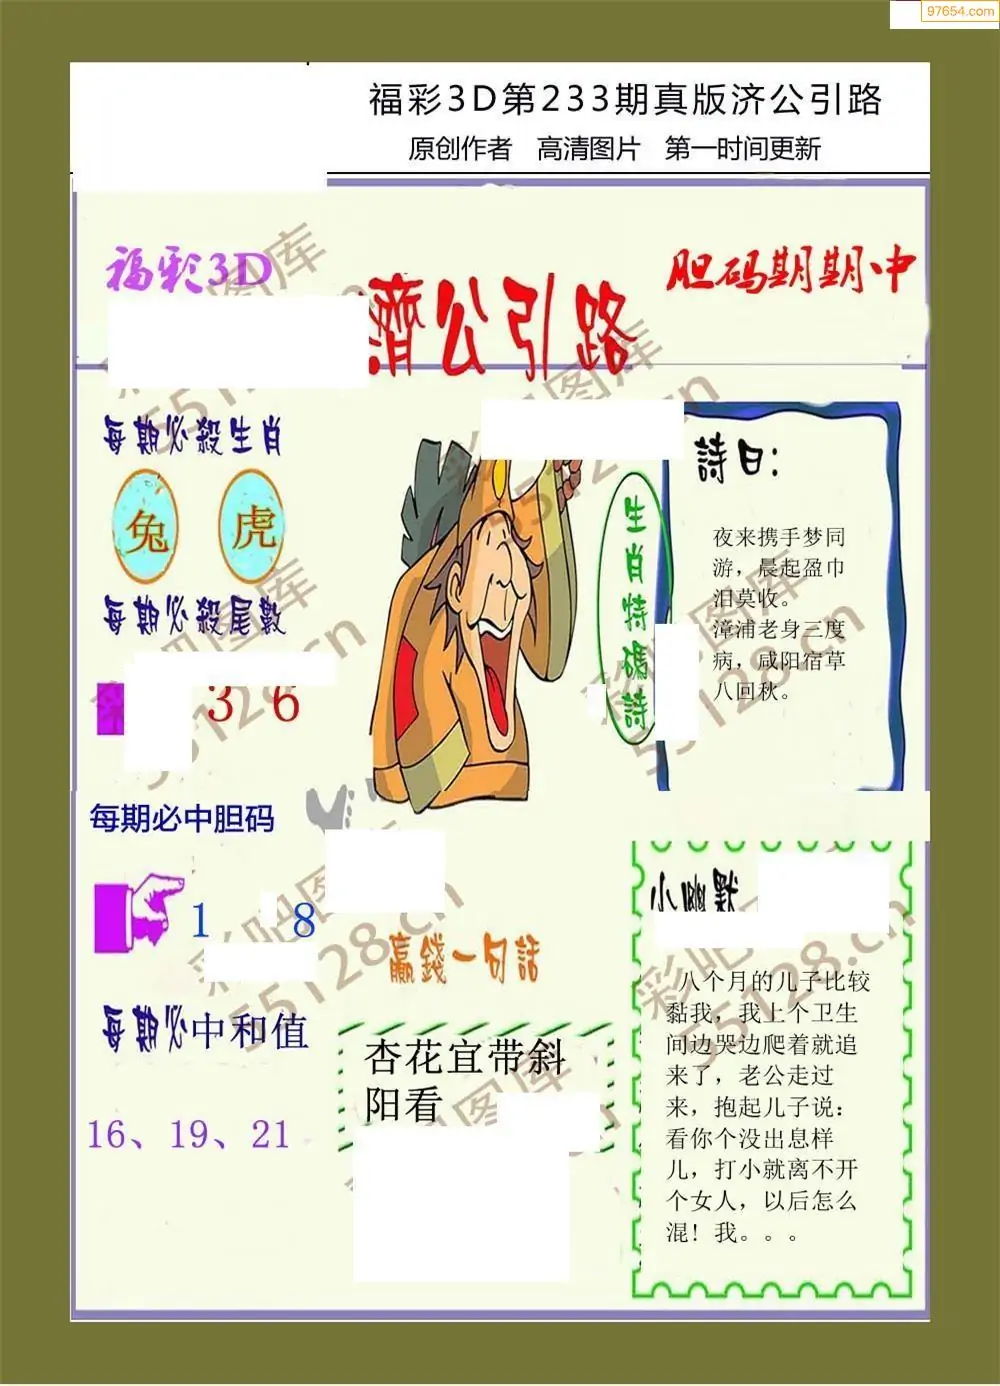 97654.com
福彩3D第233期真版济公引路
原创作者 高清图片 第一时间更新
福彩3D
濟公引路
胆码期期中
每期必殺生肖
兔 虎
每期必殺尾數
3 6
每期必中胆码
1 8
每期必中和值
16、19、21
生肖特碼詩
詩曰:
夜来携手梦同
游，晨起盈巾
泪莫收。
漳浦老身三度
病，咸阳宿草
八回秋。
贏錢一句話
杏花宜带斜
阳看
小幽默
八个月的儿子比较
黏我，我上个卫生
间边哭边爬着就追
来了，老公走过
来，抱起儿子说：
看你个没出息样
儿，打小就离不开
个女人，以后怎么
混！我。。。
彩吧图库
55128.cn